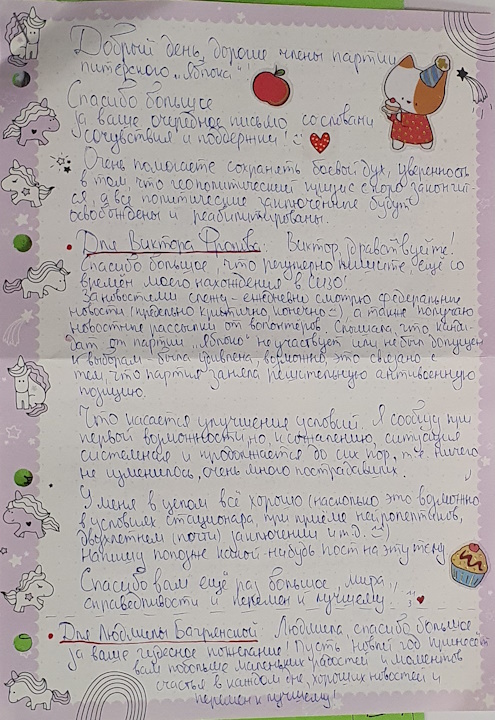 Добрый день, дорогие члены партии
питерского "Яблока"!
Спасибо большое
за ваше очередное письмо со словами
сочувствия и поддержки!
Очень помогаете сохранять боевой дух, уверенность
в том, что геополитический кризис скоро закончит-
ся, а все политические заключённые будут
освобождены и реабилитированы.
• Для Виктора Виктор, здравствуйте!
Спасибо большое, что регулярно пишете ещё со
времён моего нахождения в СИЗО!
За новостями слежу - ежедневно смотрю федеральные
новости (предельно критично, конечно), а также получаю
новостные рассылки от волонтеров. Слышала, что канди-
дат от партии "Яблоко" не участвует или не был допущен
к выборам - была удивлена, возможно, это связано с
тем, что партия заняла решительную антивоенную
позицию.
Что касается улучшения условий. Я сообщу при
первой возможности, но, к сожалению, ситуация
системная и продолжается до сих пор, т.е. ничего
не изменилось, очень много пострадавших.
У меня в целом всё хорошо (насколько это возможно
в условиях стационара, при приёме нейролептиков,
двухлетнем (почти) заключении и т.д.)
Напишу попозже какой-нибудь пост на эту тему
Спасибо вам ещё раз большое, мира,
справедливости и перемен к лучшему!
• Для Людмилы Людмила, спасибо большое
за ваше чудесное пожелание! Пусть новый год принесёт
вам побольше маленьких радостей и моментов
счастья в каждом дне, хороших новостей и
перемен к лучшему!